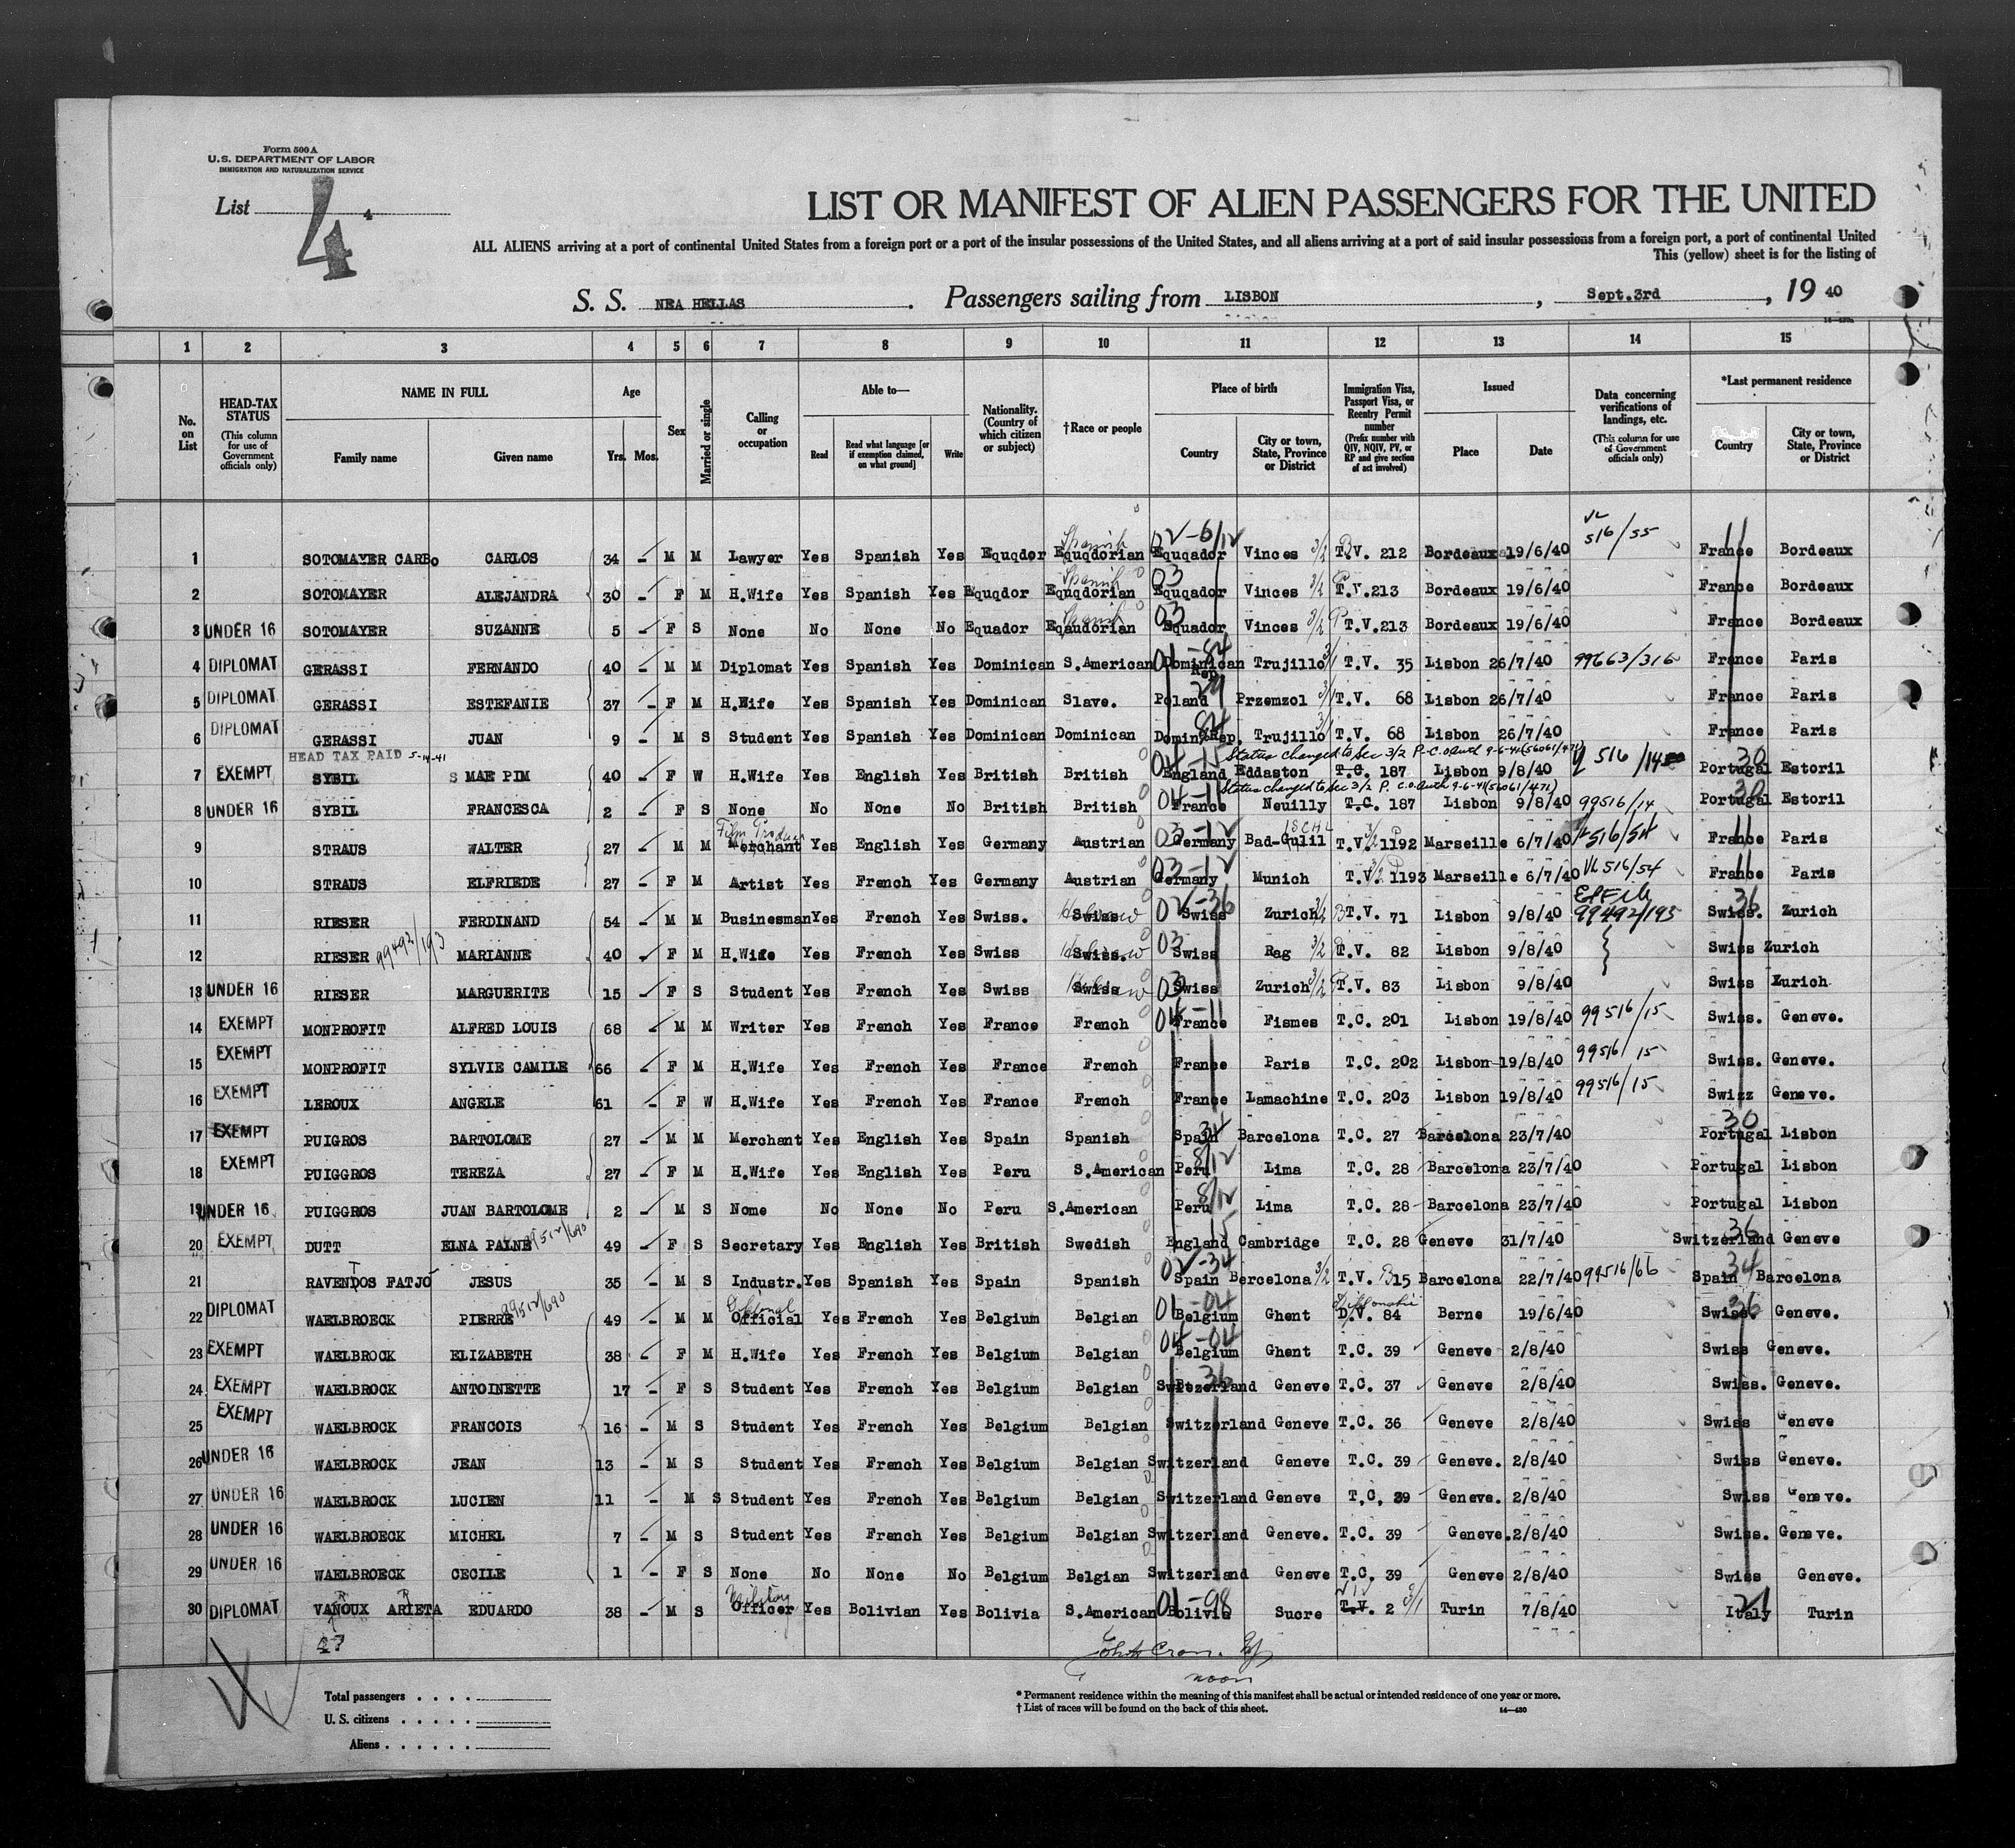 Form 500 A
U.S. DEPARTMENT OF LABOR
IMMIGRATION AND NATURALIZATION SERVICE
List 4
4
LIST OR MANIFEST OF ALIEN PASSENGERS FOR THE UNITED
ALL ALIENS arriving at a port of continental United States from a foreign port or a port of the insular possessions of the United States, and all aliens arriving at a port of said insular possessions from a foreign port, a port of continental United
This (yellow) sheet is for the listing of
S. S. NEA HELLAS . Passengers sailing from LISBON , Sept.3rd , 19 40
1 2 3 4 5 6 7 8 9 10 11 12 13 14 15
No. on List
HEAD-TAX STATUS (This column for use of Government officials only)
NAME IN FULL Family name Given name
Age Yrs. Mos.
Sex
Married or single
Calling or occupation
Able to— Read Read what language [or if exemption claimed, on what ground] Write
Nationality. (Country of which citizen or subject)
†Race or people
Place of birth Country City or town, State, Province or District
Immigration Visa, Passport Visa, or Reentry Permit number (Prefix number with QIV, NQIV, PV, or RP and give section of act involved)
Issued Place Date
Data concerning verifications of landings, etc. (This column for use of Government officials only)
*Last permanent residence Country City or town, State, Province or District
1 SOTOMAYER CARBO CARLOS 34 - M M Lawyer Yes Spanish Yes Equqdor Equqdorian Spanish 02-6/12 Equqador Vinces 3/2 T.V. 212 Bordeaux 19/6/40 516/55 11 France Bordeaux
2 SOTOMAYER ALEJANDRA 30 - F M H.Wife Yes Spanish Yes Equqdor Equqdorian Spanish 03 Equqador Vinces 3/2 T.V.213 Bordeaux 19/6/40 France Bordeaux
3 UNDER 16 SOTOMAYER SUZANNE 5 - F S None No None No Equador Eqaudorian Spanish 03 Equador Vinces 3/2 T.V.213 Bordeaux 19/6/40 France Bordeaux
4 DIPLOMAT GERASSI FERNANDO 40 - M M Diplomat Yes Spanish Yes Dominican S.American 01-84 Dominican Rep. Trujillo 3/1 T.V. 35 Lisbon 26/7/40 99663/316 France Paris
5 DIPLOMAT GERASSI ESTEFANIE 37 - F M H.Wife Yes Spanish Yes Dominican Slave. Poland 29 Przemzol 3/1 T.V. 68 Lisbon 26/7/40 France Paris
6 DIPLOMAT GERASSI JUAN 9 - M S Student Yes Spanish Yes Dominican Dominican 84 Domin.Rep. Trujillo 3/1 T.V. 68 Lisbon 26/7/40 France Paris
HEAD TAX PAID 5-14-41 Status changed to Sec 3/2 P. C.O. Auth 9-6-41 (56061/471)
7 EXEMPT SYBIL S MAE PIM 40 - F W H.Wife Yes English Yes British British 04-15 England Eddaston T.C. 187 Lisbon 9/8/40 516/14 30 Portugal Estoril
Status changed to Sec 3/2 P. C.O. Auth 9-6-41 (56061/471)
8 UNDER 16 SYBIL FRANCESCA 2 - F S None No None No British British 04-11 France Neuilly T.C. 187 Lisbon 9/8/40 99516/14 30 Portugal Estoril
9 STRAUS WALTER 27 - M M Film Producer Merchant Yes English Yes Germany Austrian 03-12 Germany Bad-Gulil ISCHL T.V. 3/2 1192 Marseille 6/7/40 516/54 11 France Paris
10 STRAUS ELFRIEDE 27 - F M Artist Yes French Yes Germany Austrian 03-12 Germany Munich T.V. 3/2 1193 Marseille 6/7/40 VL 516/54 11 France Paris
11 RIESER FERDINAND 54 - M M Businesman Yes French Yes Swiss. Swiss Hebrew 02-36 Swiss Zurich 3/2 T.V. 71 Lisbon 9/8/40 99492/193 36 Swiss. Zurich
12 RIESER 99492/193 MARIANNE 40 - F M H.Wife Yes French Yes Swiss Swiss. Hebrew 03 Swiss Rag 3/2 T.V. 82 Lisbon 9/8/40 Swiss Zurich
13 UNDER 16 RIESER MARGUERITE 15 - F S Student Yes French Yes Swiss Swiss Hebrew 03 Swiss Zurich 3/2 T.V. 83 Lisbon 9/8/40 Swiss Zurich
14 EXEMPT MONPROFIT ALFRED LOUIS 68 - M M Writer Yes French Yes France French 04-11 France Fismes T.C. 201 Lisbon 19/8/40 99516/15 Swiss. Geneve.
15 EXEMPT MONPROFIT SYLVIE CAMILE 66 F M H.Wife Yes French Yes France French France Paris T.C. 202 Lisbon 19/8/40 99516/15 Swiss. Geneve.
16 EXEMPT LEROUX ANGELE 61 - F W H.Wife Yes French Yes France French France Lamachine T.C. 203 Lisbon 19/8/40 99516/15 Swizz Geneve.
17 EXEMPT PUIGROS BARTOLOME 27 - M M Merchant Yes English Yes Spain Spanish Spain 34 Barcelona T.C. 27 Barcelona 23/7/40 30 Portugal Lisbon
18 EXEMPT PUIGGROS TEREZA 27 - F M H.Wife Yes English Yes Peru S.American Peru 8/12 Lima T.C. 28 Barcelona 23/7/40 Portugal Lisbon
19 UNDER 16 PUIGGROS JUAN BARTOLOME 2 - M S Nome No None No Peru S.American Peru 8/12 Lima T.C. 28 Barcelona 23/7/40 Portugal Lisbon
20 EXEMPT DUTT ELNA PALNE 99512/690 49 - F S Secretary Yes English Yes British Swedish 15 England Cambridge T.C. 28 Geneve 31/7/40 36 Switzerland Geneve
21 RAVENDOS FATJO T JESUS 35 - M S Industr. Yes Spanish Yes Spain Spanish 02-34 Spain Bercelona 3/2 T.V. B15 Barcelona 22/7/40 99516/66 34 Spain Barcelona
22 DIPLOMAT WAELBROECK PIERRE 99512/690 49 - M M Official Yes French Yes Belgium Belgian 01-04 Belgium Ghent D.V. 84 Berne 19/6/40 36 Swiss. Geneve.
23 EXEMPT WAELBROCK ELIZABETH 38 - F M H.Wife Yes French Yes Belgium Belgian 04-04 Belgium Ghent T.C. 39 Geneve 2/8/40 Swiss Geneve.
24 EXEMPT WAELBROCK ANTOINETTE 17 - F S Student Yes French Yes Belgium Belgian 36 Switzerland Geneve T.C. 37 Geneve 2/8/40 Swiss. Geneve.
25 EXEMPT WAELBROCK FRANCOIS 16 - M S Student Yes French Yes Belgium Belgian Switzerland Geneve T.C. 36 Geneve 2/8/40 Swiss Geneve
26 UNDER 16 WAELBROCK JEAN 13 - M S Student Yes French Yes Belgium Belgian Switzerland Geneve T.C. 39 Geneve. 2/8/40 Swiss Geneve.
27 UNDER 16 WAELBROCK LUCIEN 11 - M S Student Yes French Yes Belgium Belgian Switzerland Geneve T.C. 39 Geneve. 2/8/40 Swiss Geneve.
28 UNDER 16 WAELBROECK MICHEL 7 - M S Student Yes French Yes Belgium Belgian Switzerland Geneve. T.C. 39 Geneve. 2/8/40 Swiss. Geneve.
29 UNDER 16 WAELBROECK CECILE 1 - F S None No None No Belgium Belgian Switzerland Geneve T.C. 39 Geneve 2/8/40 Swiss Geneve.
30 DIPLOMAT VANOUX ARIETA EDUARDO 38 - M S Military Officer Yes Bolivian Yes Bolivia S.American 01-98 Bolivia Sucre T.V. 2 3/1 Turin 7/8/40 21 Italy Turin
47
noon
Total passengers . . . .
U. S. citizens . . . . .
Aliens . . . . . .
* Permanent residence within the meaning of this manifest shall be actual or intended residence of one year or more.
† List of races will be found on the back of this sheet.
14—430